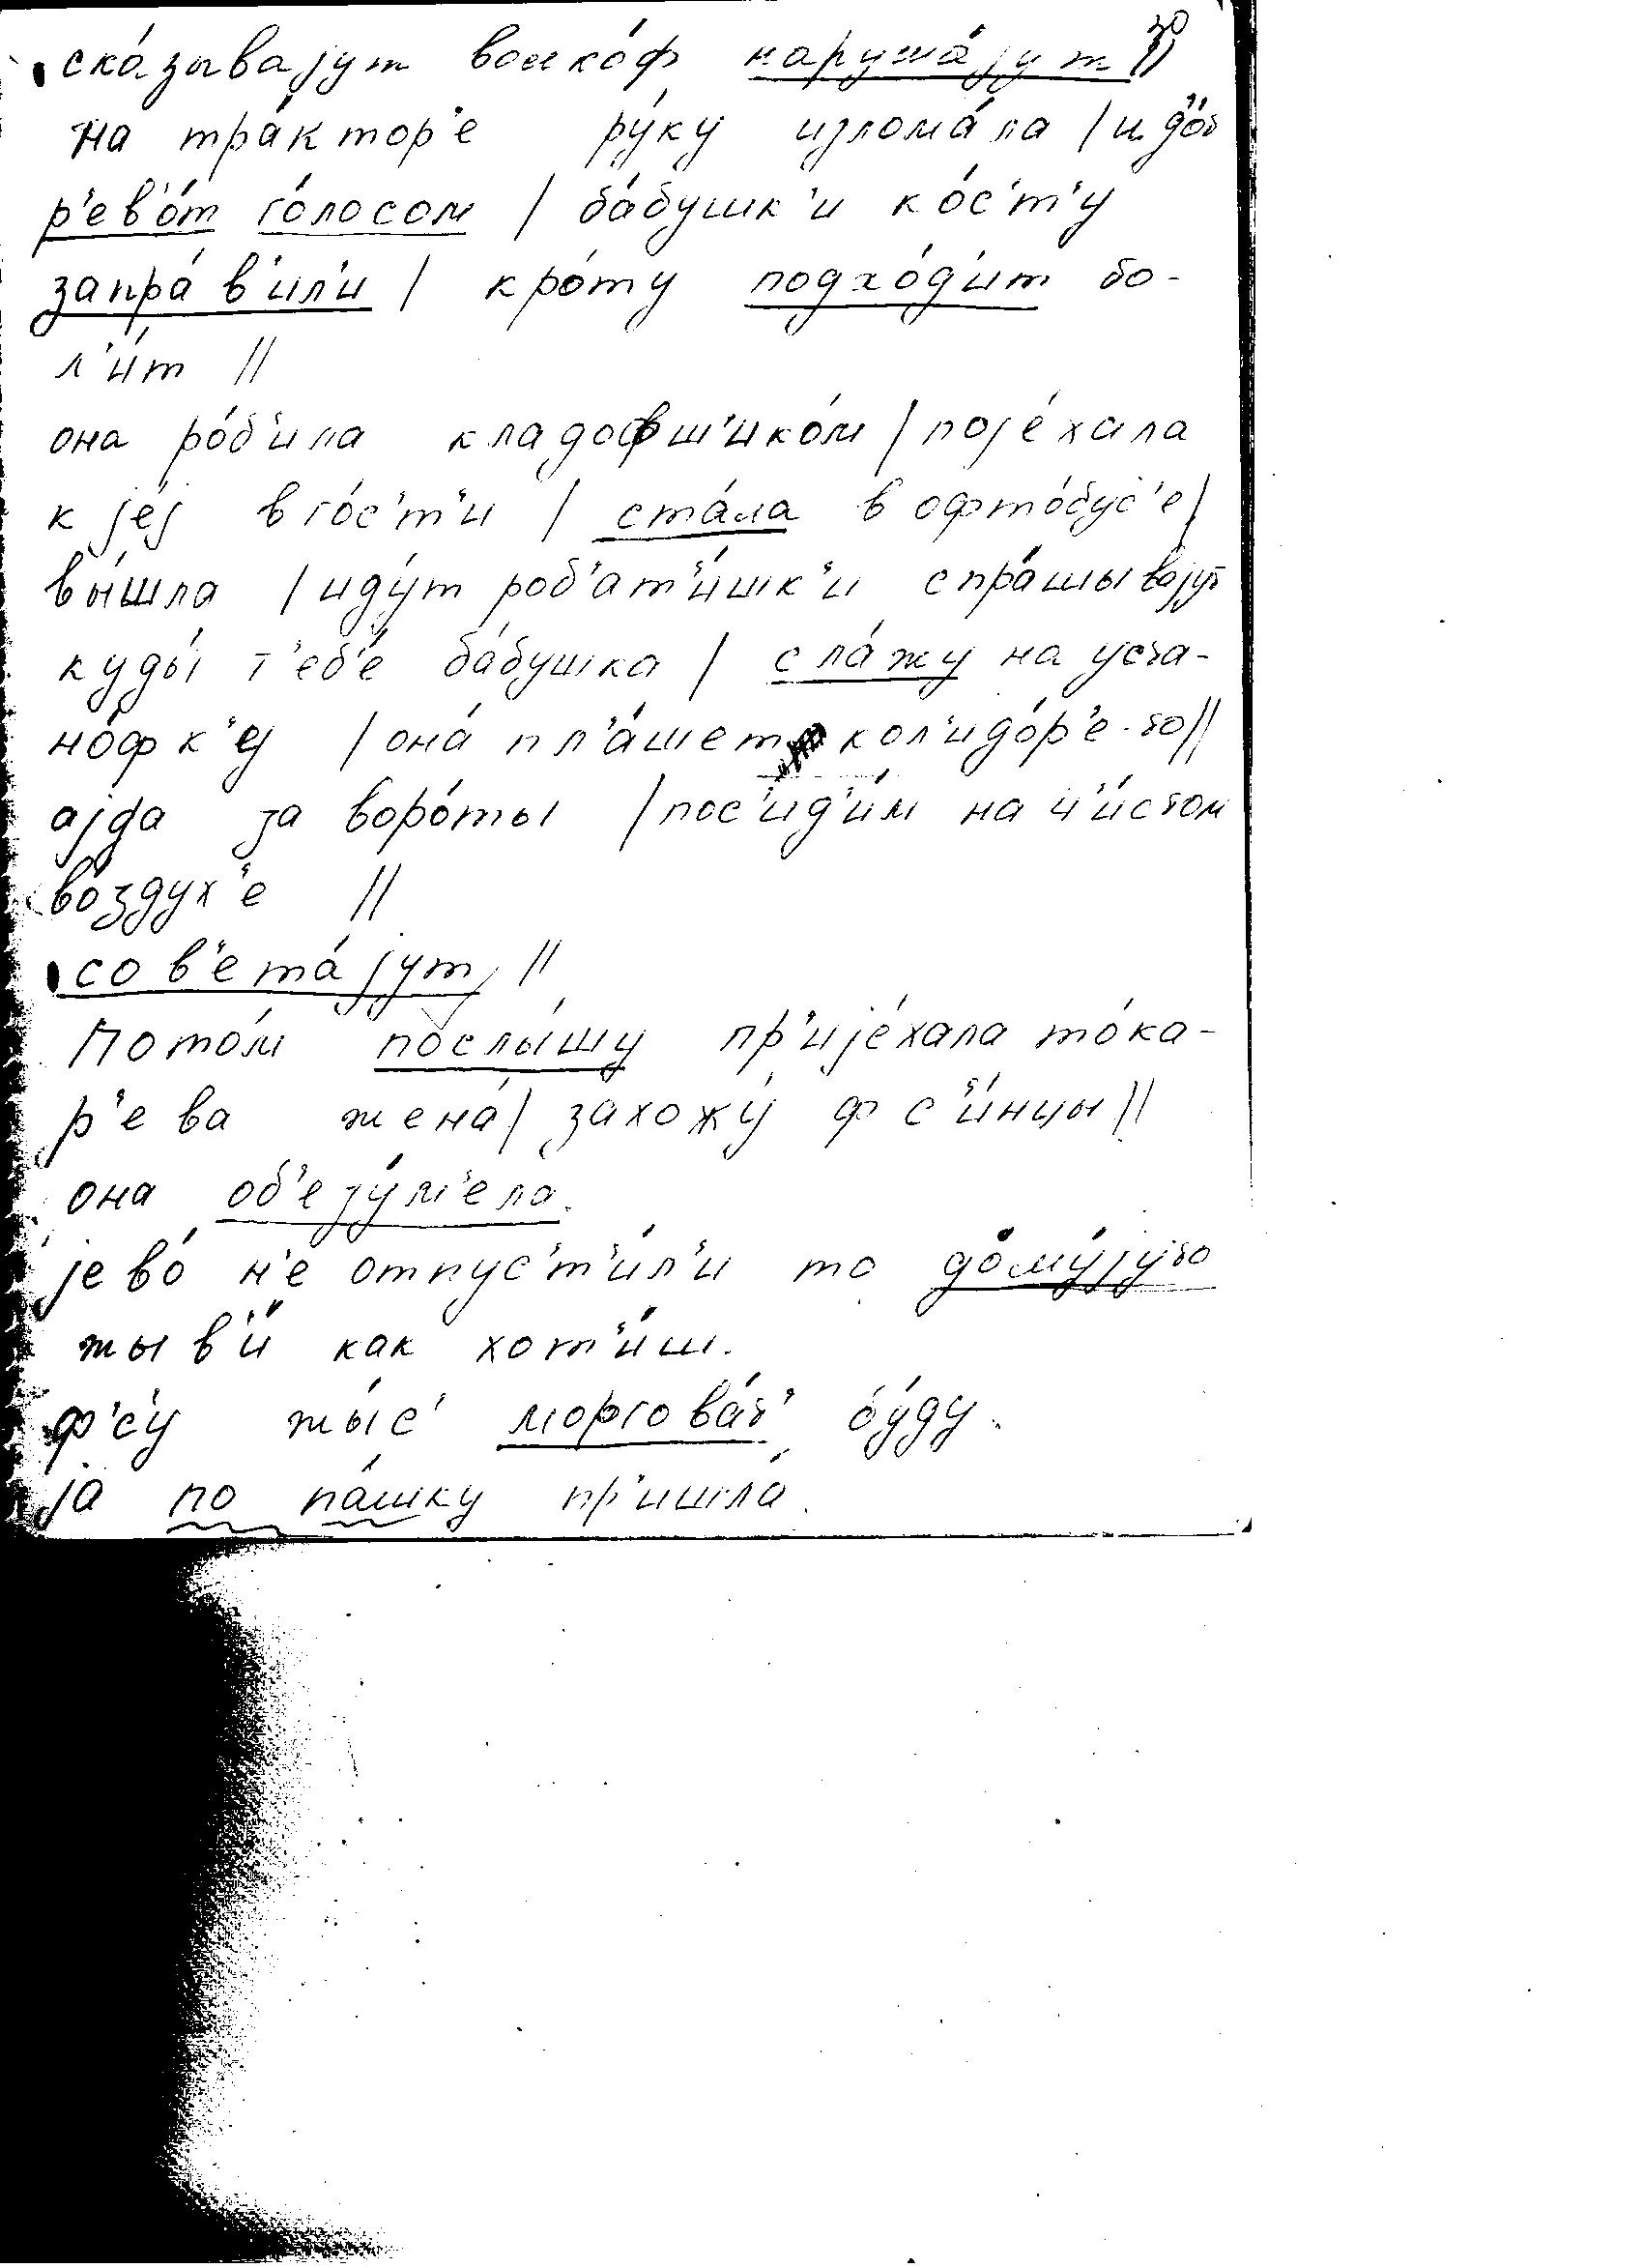 30
ска́зывајут волко́ф наруша́јут ||
на тра́ктор'е ру́ку излома́ла | ид'о́т
р'ев'о́т го́лосом | ба́бушк'и ко́с'т'у
запра́в'ил'и | кро́ту подхо́д'ит бо-
л'и́т ||
она ро́б'ила кладофш'ико́м | поје́хала
к је́ј в го́с'т'и | ста́ла в офто́бус'е |
вы́шла | иду́т роб'ат'и́шк'и спра́шывајут
куды́ т'еб'е́ ба́бушка | сла́жу на уста-
но́фк'еј | она́ пл'а́шет кол'идо́р'е-то ||
ајда за воро́ты | пос'ид'и́м на ч'и́стом
во́здух'е ||
сов'ета́јут ||
Пото́м послы́шу пр'ије́хала то́ка-
р'ева жена́ | захожу́ ф с'и́нцы ||
она об'езу́м'ела.
јево́ н'е отпус'т'и́л'и то дому́јуто
жыв'и́ как хот'и́ш.
ф'с'у жы́с' моргова́т' бу́ду.
ја по па́шку пр'ишла́.